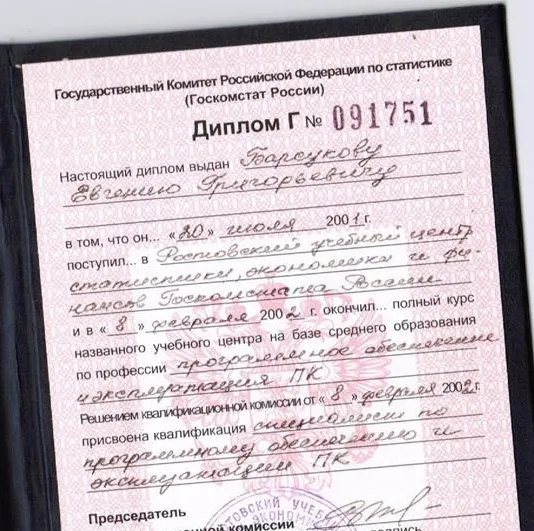 Государственный Комитет Российской Федерации по статистике
(Госкомстат России)
Диплом Г № 091751
Настоящий диплом выдан Барсукову
Евгению Григорьевичу
в том, что он... «20» июля 2001 г.
поступил... в Ростовский учебный центр
статистики, экономики и фи-
нансов Госкомстата России
и в «8» февраля 2002 г. окончил... полный курс
названного учебного центра на базе среднего образования
по профессии программное обеспечение
и эксплуатация ПК
Решением квалификационной комиссии от «8» февраля 2002 г.
присвоена квалификация специалист по
программному обеспечению и
эксплуатации ПК
Председатель
комиссии